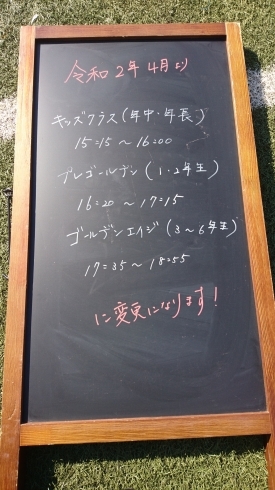 令和2年4月より
キッズクラス(年中・年長)
15:15〜16:00
プレゴールデン(1・2年生)
16:20〜17:15
ゴールデンエイジ(3〜6年生)
17:35〜18:55
に変更になります!